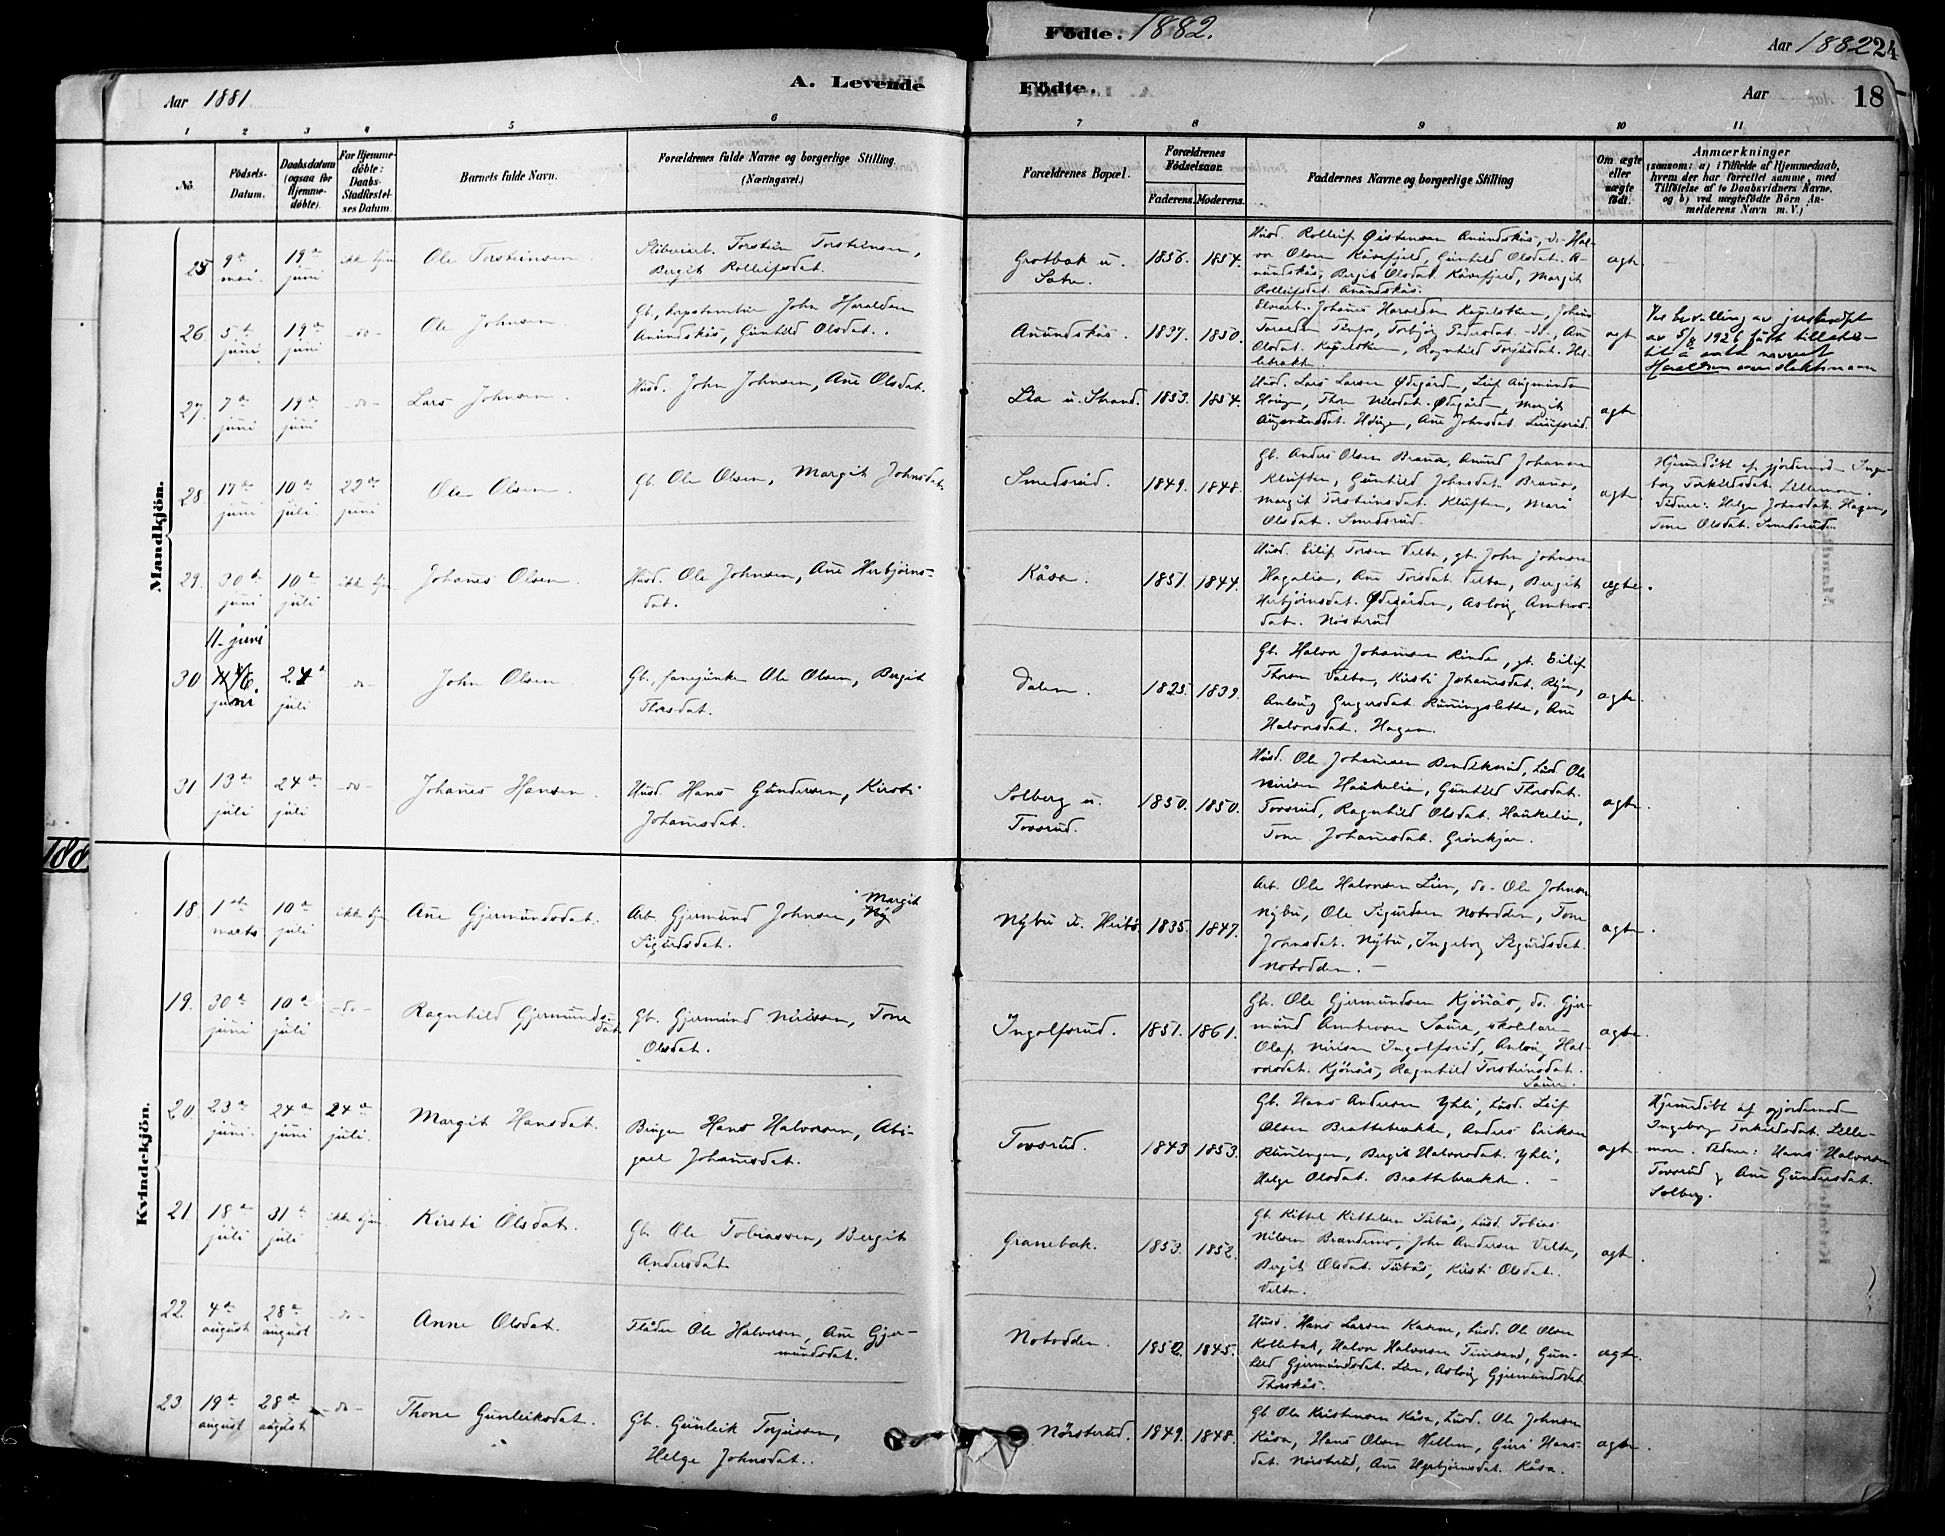 Födte. 1882.
Aar 1882 24
Aar 1881
A. Levende
Födte.
Aar
18
1 2 3 4 5 6 7 8 9 10 11
No.
Födsels-
Datum.
Daabsdatum
(ogsaa for
Hjemme-
döbte).
For Hjemme-
döbte:
Daabs-
Stadfæstel-
ses Datum.
Barnets fulde Navn.
Forældrenes fulde Navne og borgerlige Stilling.
(Næringsvei.)
Forældrenes Bopæl.
Forældrenes
Födselsaar.
Faderens. Moderens.
Faddernes Navne og borgerlige Stilling
Om ægte
eller
uægte
född.
Anmærkninger
(saasom: a) i Tilfælde af Hjemmedaab,
hvem der har forrettet samme, med
Tilföielse af to Daabsvidners Navne,
og b) ved uægtefödte Börn An-
melderens Navn m. V.)
Mandkjön.
25 9de mai. 19de juni ikke hjm Ole Torsteinsen
Torstein Torsteinsen,
Bergit Rolleifsdat.
Grotbæk u.
1856. 1854.
Husd. Rolleif Øistensen Anundskås, do Hal-
vor Olsen Kåvefjeld, Gunhild Olsdat. A-
nundskås, Bergit Olsdat. Kåvefjeld, Margit
Rolleifsdat. Anundskås.
ægte
26 5te juni. 19de juni -do- Ole Johnsen.
Gb, John Haraldsen
Anundskås, Gunhild Olsdat.
Anundskås. 1837. 1850.
Johanes Haraldsen
Olsdat. Ragnhild Torjusdat.
ægte
Ved bevilling av
av 5/8 1926 født tillatelse
til å navnet
Haraldsen som slektsnavn
27. 7de juni 19de juni -do- Lars Johnsen.
Husd. John Johnsen, Ane Olsdat.
Lia u. Strand. 1853. 1854.
Husd. Lars Larsen Ødegården, Leif Augmundsen
Høige, Thone Nilsdat. Ødegård, Margit
Augmundsdat. Høige, Ane Johnsdat.
ægte
28 17de juni 10de juli 22de juni Ole Olsen.
Gb. Ole Olsen, Margit Johnsdat.
Smedsrud. 1849. 1848.
Gb. Anders Olsen Bruna, Anund Johansen
Kluften, Gunhild Johnsdat. Bruna,
Margit Torsteinsdat. Kluften, Mari
Olsdat. Smedsrud.
ægte
Hjemdøbt af gjordemod. Inge-
borg Torkildsdat. Lillemoen.
Vidner: Helge Johnsdat. Hagen,
Tone Olsdat. Smedsrud.
29. 30te juni 10de juli ikke hjm. Johanes Olsen
Husd. Ole Johnsen, Ane Herbjørns-
dat.
Kåsa. 1851. 1844.
Husd. Eilif Torsen Velta, gb. John Johnsen
Hagalia, Ane Torsdat. Velta, Bergit
Herbjørnsdat. Ødegården, Aslaug Ambros-
dat. Nøsterud
ægte.
11. juni
30 juni 24de juli -do- John Olsen.
Gb., fanejunker Ole Olsen, Bergit
Thorsdat.
Dalen. 1825. 1839.
Gb. Halvor Johansen Rinde, gb. Eilif
Thorsen Velta, Kirsti Johannesdat.
Aslaug Gregersdat. Ane
Halvorsdat. Hagen.
ægte
31 13de juli 24de juli -do- Johanes Hansen.
Husd. Hans Gundersen, Kirsti
Johannesdat.
Solberg u.
Tovsrud.
1850. 1850.
Husd. Ole Johannesen Bendiksrud, husd. Ole
Nirisen Haukelia, Gunhild Thorsdat.
Tovsrud, Ragnhild Olsdat. Haukelia,
Tone Johannesdat. Grønkjær.
ægte
188
Kvindekjön.
18. 1ste marts 10de juli ikke hjm Ane Gjermundsdat.
Arb. Gjermund Johnsen, Margit
Sigurdsdat.
Nybu u. Heibø 1835. 1847.
Arb. Ole Halvorsen Lien, do. Ole Johnsen
Nybu, Ole Sigurdsen Notodden, Tone
Johnsdat. Nybu, Ingeborg Sigurdsdat.
Notodden. –
ægte.
19. 30te juni 10de juli -do- Ragnhild Gjermunds-
dat.
Gb. Gjermund Nirisen, Tone
Olsdat.
Ingolfsrud. 1851. 1861.
Gb. Ole Gjermundsen Kjønås, do. Gjer-
mund Ambrosen Saure, skolelærer
Olaf Nirisen Ingolfsrud, Aslaug Hal-
vorsdat. Kjønås, Ragnhild Torsteinsdat.
Saure.
ægte.
20. 23de juni. 24de juni 24de juli. Margit Hansdat.
Hans Halvorsen, Abi-
gael Johannesdat.
Tovsrud. 1843. 1853.
Gb. Hans Andersen Yhli, husd. Leif
Olsen Brattebrække, Anders Eriksen
Bergit Halvorsdat. Yhli,
Helge Olsdat. Brattebrække. –
ægte
Hjemdøbt af gjordemod
Ingeborg Torkildsdat. Lille-
moen. Vidner: Hans Halvorsen
Tovsrud & Ane Gundersdat.
Solberg.
21. 18de juli 31te juli ikke hjm Kirsti Olsdat.
Gb. Ole Tobiassen, Bergit
Andersdat.
Granebæk. 1853. 1852.
Gb. Kittel Kittelsen Tubås, husd. Tobias
Nilsen Brandmo, John Andersen Velta,
Bergit Olsdat. Tubås, Kirsti Olsdat.
Velta.
ægte.
22. 4de august 28de august -do- Anne Olsdat.
Flåder Ole Halvorsen, Ane Gjer-
mundsdat.
Notodden. 1852. 1845.
Husd. Hans Larsen husd. Ole Olsen
Kollebæk, Halvor Halvorsen Tinsand, Gun-
hild Gjermundsdat. Lien, Aslaug Gjermundsdat.
Thorskås.
ægte.
23. 19de august 28de august -do- Thone Gunleiksdat.
Gb. Gunleik Torjussen,
Helge Johnsdat.
Nørsterud. 1849. 1848.
Gb Ole Kristensen Kåsa, husd. Ole Johnsen
Kåsa, Hans Olsen Guri Hans-
dat. Nørsterud, Ane Herbjørnsdat. Kåsa.
ægte.